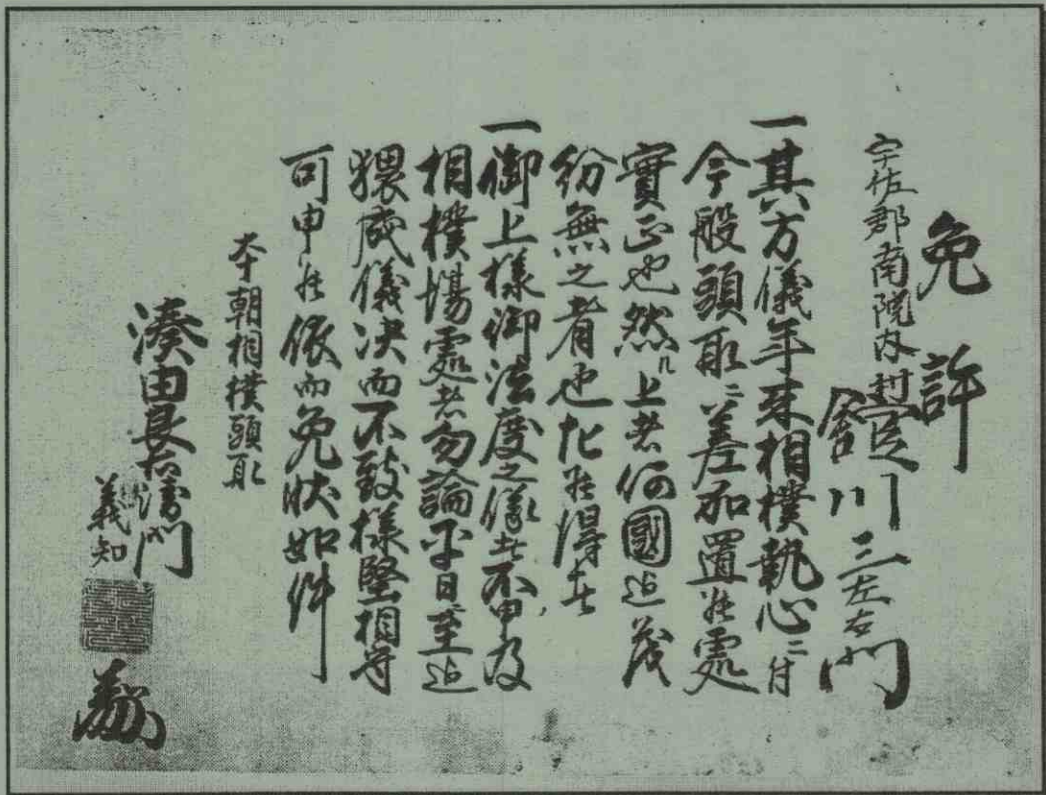 免許
宇佐郡南院内村
川三左右門
一其方儀年来相撲執心ニ付
今般頭取ニ差加置候處
實正也然ル上者何國迄茂
紛無之者也化候得共
一御上様御法度之儀者不申及
相撲場處者勿論平日至迄
猥成儀決而不致様堅相守
可申候依而免状如件
本朝相撲頭取
湊由良右衛門
義知